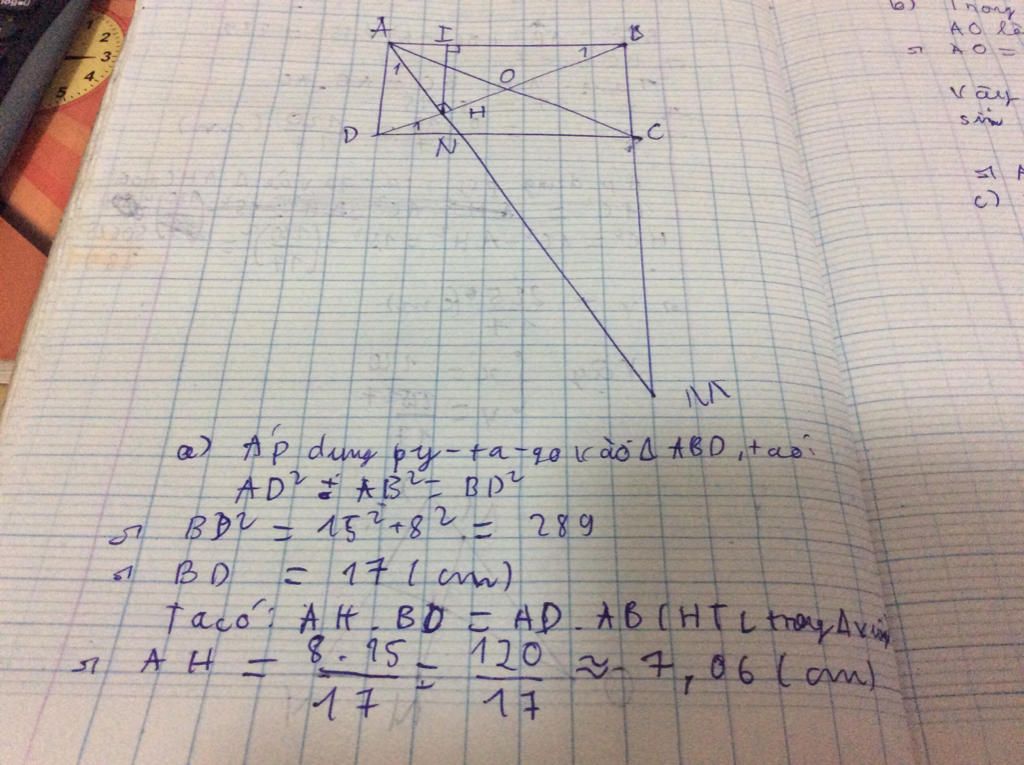 A I B
1 1
O
H
D 1 N C
M
a) Áp dụng py-ta-go vào Δ ABD, ta có:
AD² + AB² = BD²
⇒ BD² = 15² + 8² = 289
⇒ BD = 17 (cm)
Ta có: AH . BD = AD . AB (HTL trong Δ vuông
⇒ AH = 8.15/17 = 120/17 ≈ 7,06 (cm)
b) Trong
AO là
⇒ AO =
Vậy
sin
c)
2
3
4
5